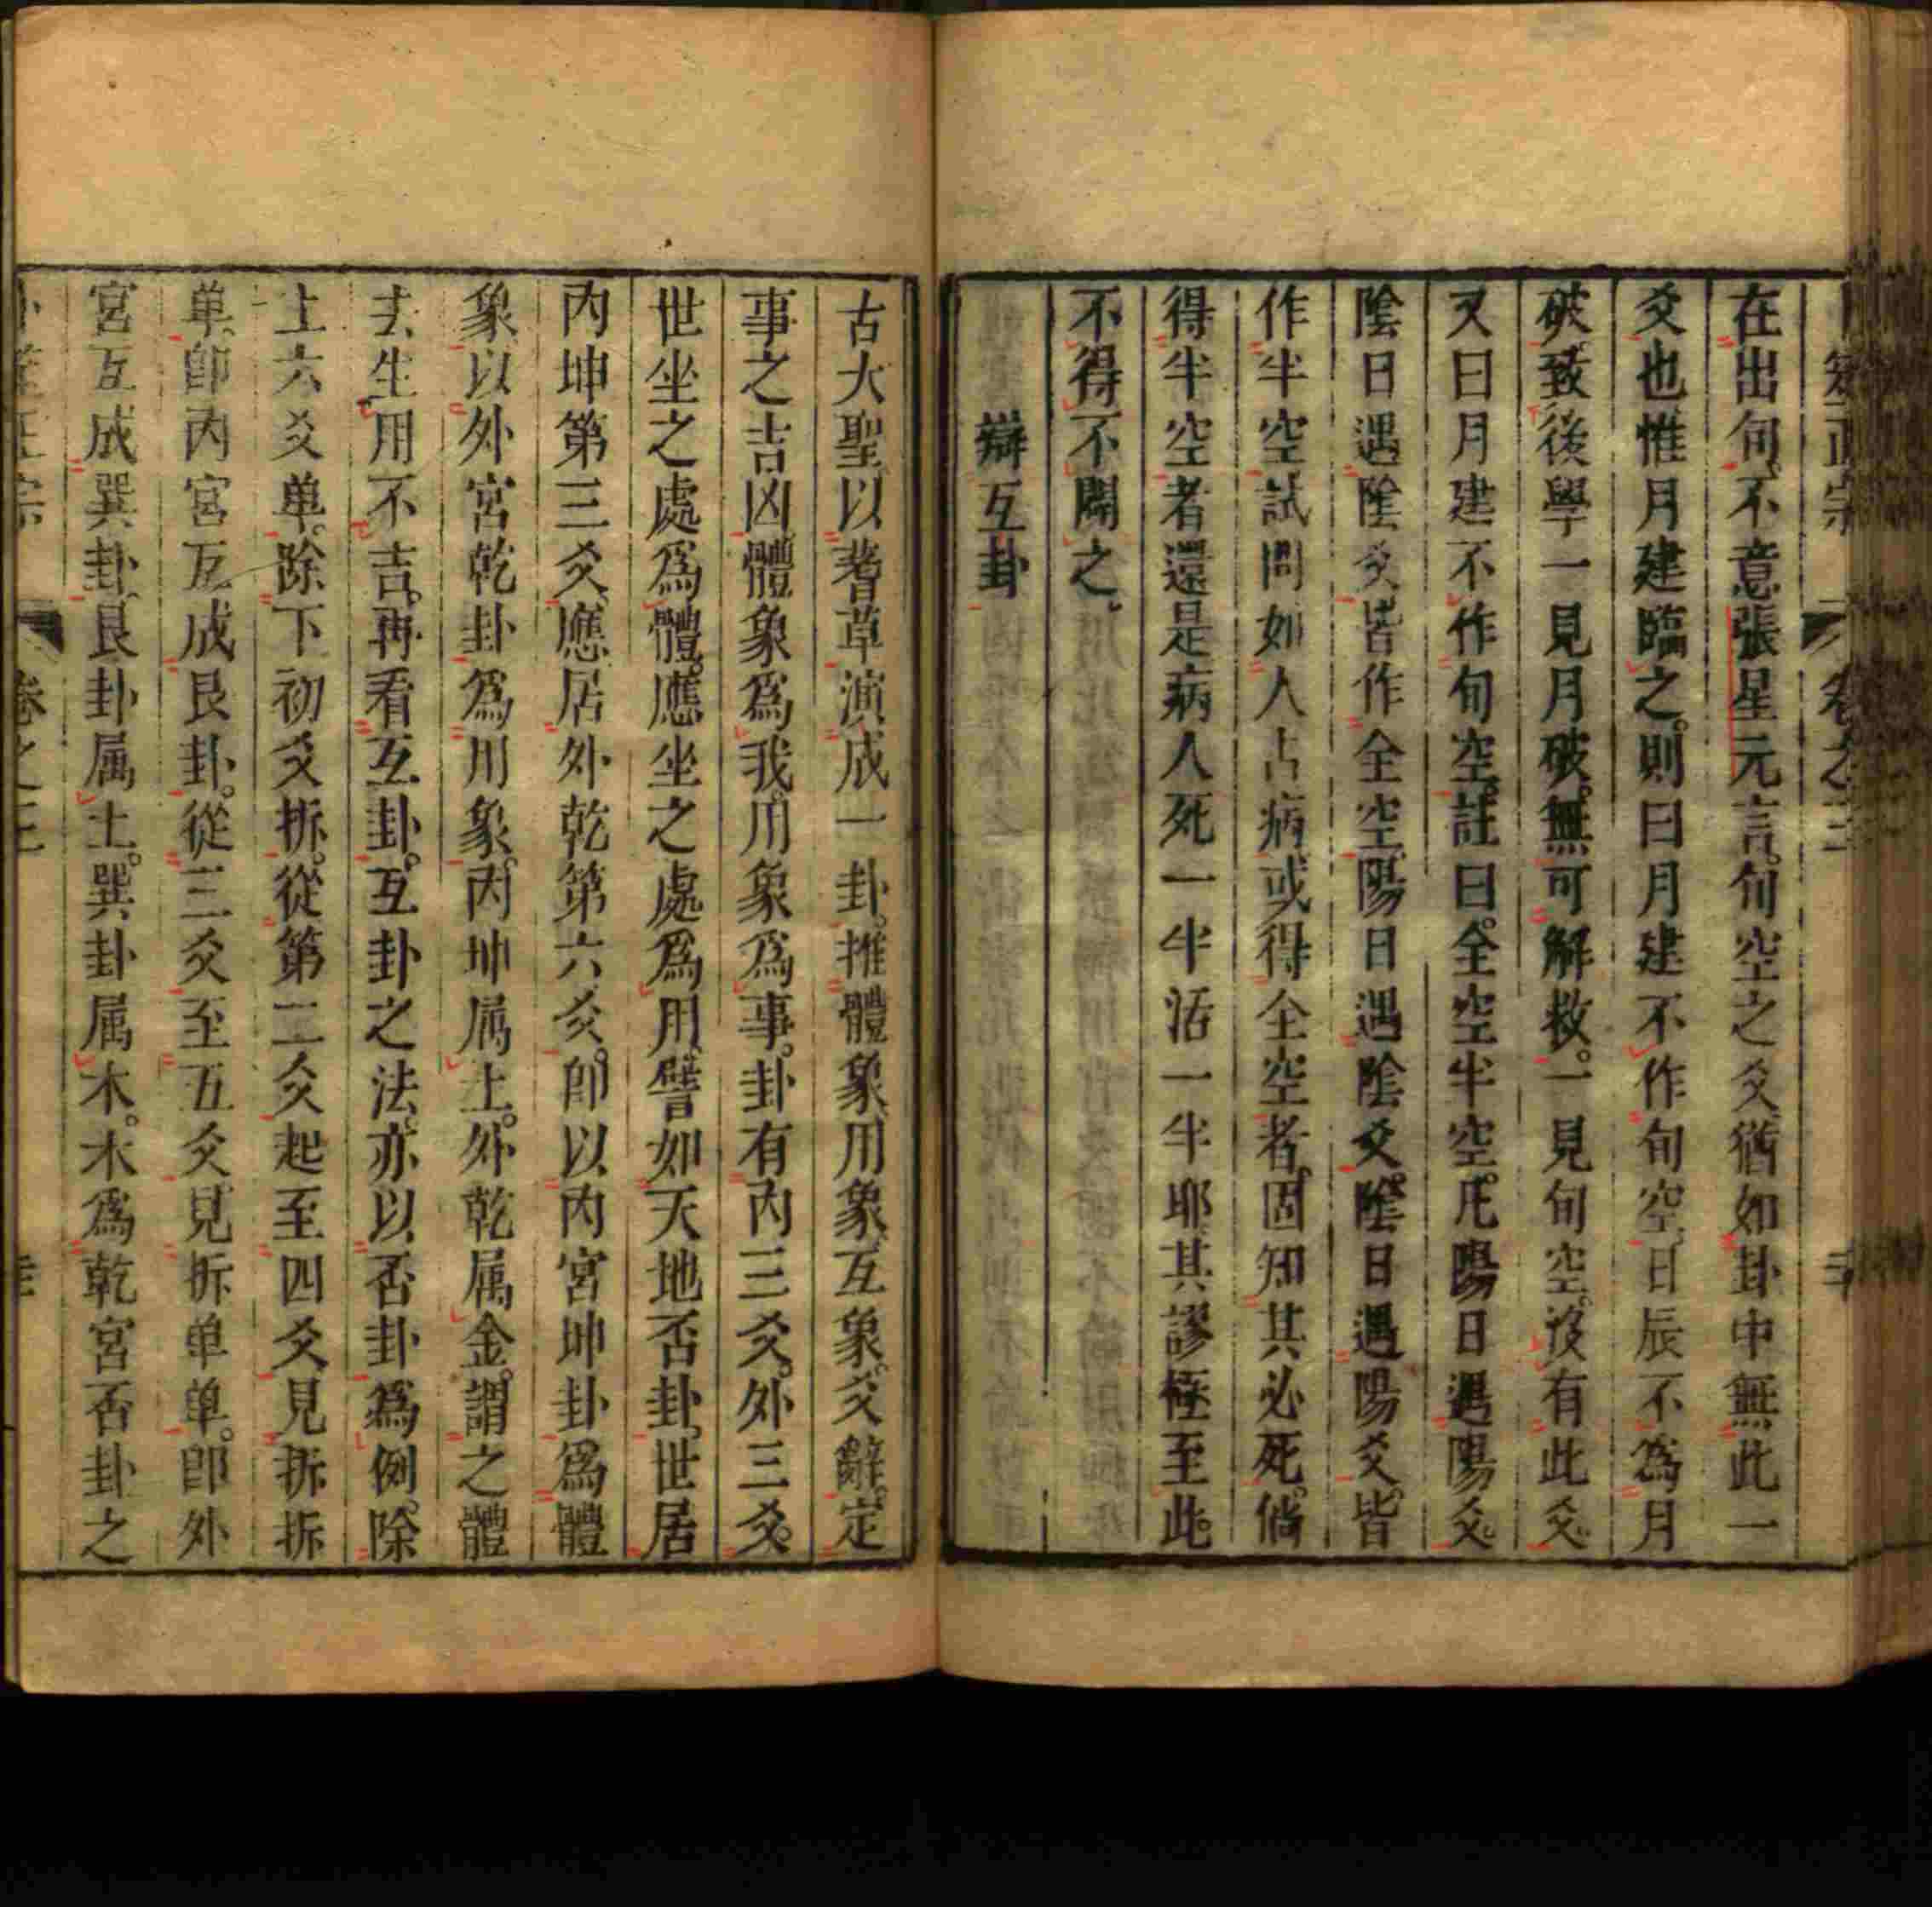 卜筮正宗 卷之三
在出旬。不意張星元言。旬空之爻。猶如卦中無此一
爻也。惟月建臨之。則曰月建不作旬空。日辰不為月
破。致後學一見月破。無可解救。一見旬空。沒有此爻。
又曰月建不作旬空。註曰。全空半空。凡陽日遇陽爻。
陰日遇陰爻皆作全空。陽日遇陰爻。陰日遇陽爻。皆
作半空。試問如人占病。或得全空者。固知其必死。倘
得半空者。還是病人死一半活一半耶。其謬極至此。
不得不闢之。
辯互卦
古大聖以蓍草演成一卦。推體象。用象。互象。爻辭。定
事之吉凶。體象爲我。用象爲事。卦有內三爻。外三爻。
世坐之處爲體。應坐之處爲用。譬如天地否卦。世居
內坤第三爻。應居外乾第六爻。卽以內宮坤卦爲體
象。以外宮乾卦爲用象。內坤属土。外乾属金。謂之體
去生用不吉。再看互卦。互卦之法。亦以否卦爲例。除
上六爻单。除下初爻拆。從第二爻起至四爻。見拆拆
单。卽內宮互成艮卦。從三爻至五爻。見拆单单。卽外
宮互成巽卦。艮卦属土。巽卦属木。木爲乾宮否卦之
卷之三